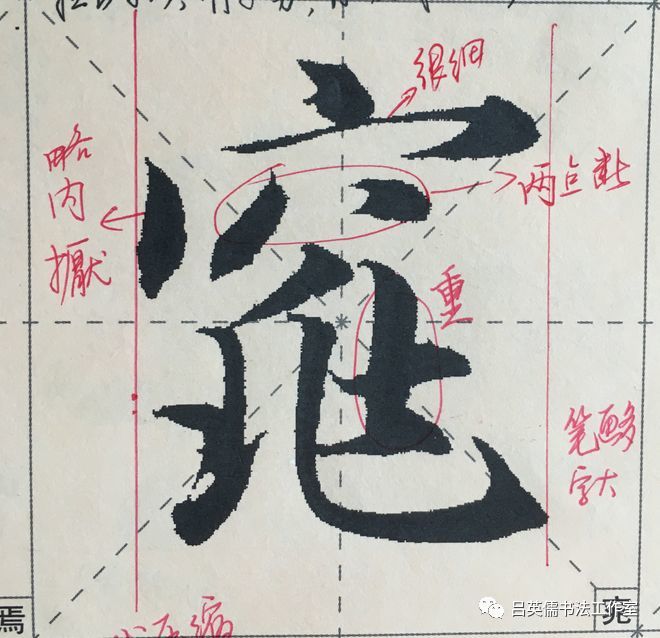 很细
略内擫
两点断
窕
重
笔画多
字大
焉
窕
吕英儒书法工作室